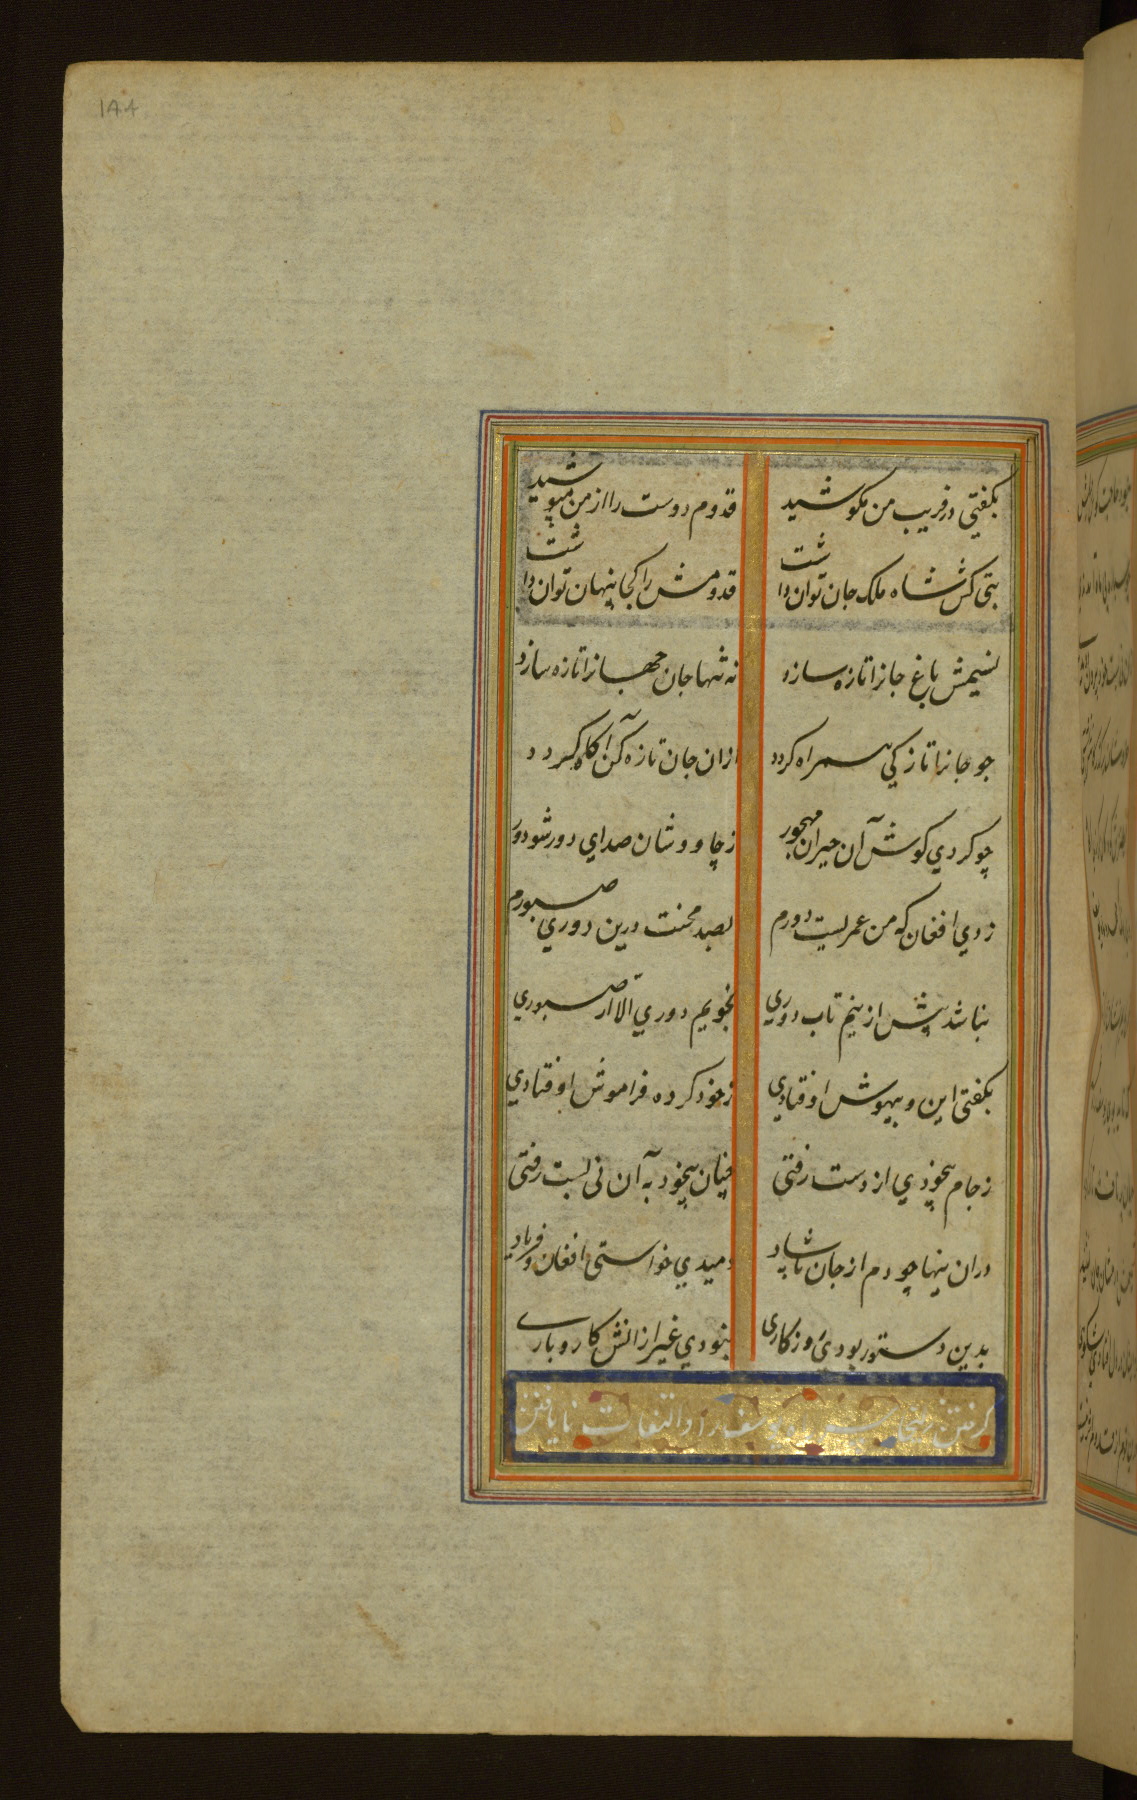 ۱۸۸
بگفتی در فریب من مکوشید
قدوم دوست را از من مپوشید
بتی کش شاه ملک جان توان داشت
قدومش را کجا پنهان توان داشت
نسیمش باغ جانرا تازه سازد
نه تنها جان جهانرا تازه سازد
جو جانرا تازگی همراه کردد
ازان جان تازه کن آکاه کردد
چو کردی کوش آن حیران مهجور
ز چاووشان صدای دور شو دور
زدی افغان که من عمریست دورم
بصد محنت درین دوری صبورم
نباشد بیش ازینم تاب دوری
نجویم دوری الا از صبوری
بکفتی این و بیهوش اوفتادی
ز خود کرده فراموش اوفتادی
ز جام بیخودی از دست رفتی
چنان بیخود به آن نی بست رفتی
دران نیها چو دم از جان ناشاد
دمیدی خواستی افغان و فریاد
بدین دستور بودی روزکاری
نبودی غیر ازانش کار و باری
کرفتن زلیخا سر راه یوسف را و التفات نایافتن